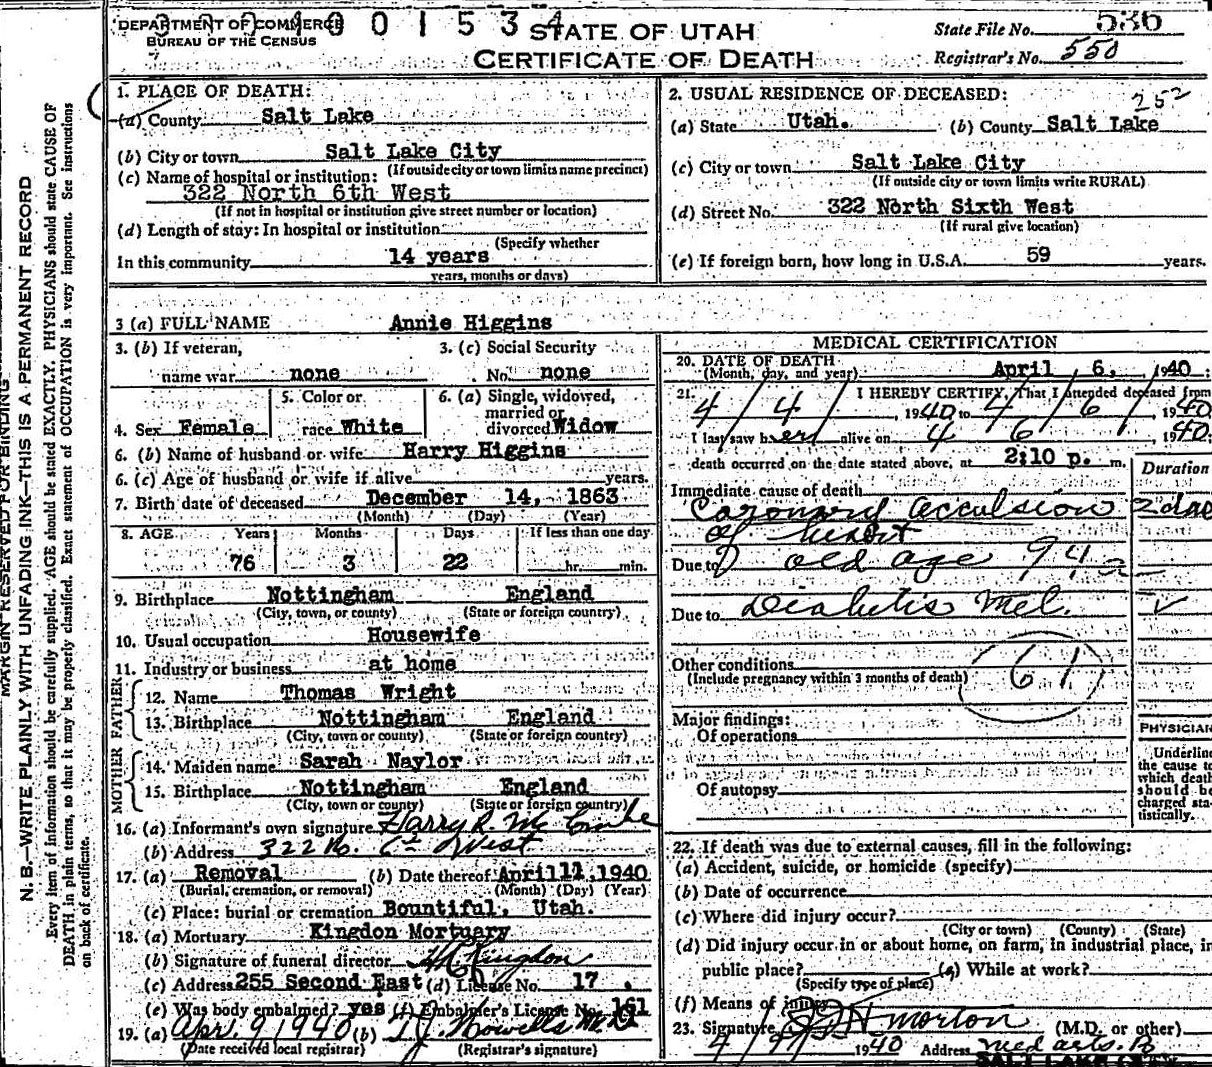 DEPARTMENT OF COMMERCE
BUREAU OF THE CENSUS
STATE OF UTAH
CERTIFICATE OF DEATH
State File No. 536
Registrar's No. 550
1. PLACE OF DEATH:
(a) County Salt Lake
(b) City or town Salt Lake City
(If outside city or town limits name precinct)
(c) Name of hospital or institution:
322 North 6th West
(If not in hospital or institution give street number or location)
(d) Length of stay: In hospital or institution
(Specify whether
In this community 14 years
years, months or days)
2. USUAL RESIDENCE OF DECEASED:
252
(a) State Utah. (b) County Salt Lake
(c) City or town Salt Lake City
(If outside city or town limits write RURAL)
(d) Street No. 322 North Sixth West
(If rural give location)
(e) If foreign born, how long in U.S.A. 59 years.
3 (a) FULL NAME Annie Higgins
3. (b) If veteran, 3. (c) Social Security
name war none No. none
5. Color or 6. (a) Single, widowed,
married or
4. Sex Female race White divorced Widow
6. (b) Name of husband or wife Harry Higgins
6. (c) Age of husband or wife if alive years.
7. Birth date of deceased December 14, 1863
(Month) (Day) (Year)
8. AGE Years Months Days If less than one day
76 3 22 hr. min.
9. Birthplace Nottingham England
(City, town, or county) (State or foreign country)
10. Usual occupation Housewife
11. Industry or business at home
FATHER
12. Name Thomas Wright
13. Birthplace Nottingham England
(City, town or county) (State or foreign country)
MOTHER
14. Maiden name Sarah Naylor
15. Birthplace Nottingham England
(City, town or county) (State or foreign country)
16. (a) Informant's own signature Harry R. Mc
(b) Address 322 No. 6th West
17. (a) Removal (b) Date thereof April 11, 1940
(Burial, cremation, or removal) (Month) (Day) (Year)
(c) Place: burial or cremation Bountiful, Utah.
18. (a) Mortuary Kingdon Mortuary
(b) Signature of funeral director Kingdon
(c) Address 255 Second East (d) License No. 17.
(e) Was body embalmed? yes (f) Embalmer's License No. 161
19. (a) Apr. 9 1940 (b) T. J. Howells
(Date received local registrar) (Registrar's signature)
MEDICAL CERTIFICATION
20. DATE OF DEATH
(Month, day, and year) April 6, 1940;
21. I HEREBY CERTIFY, That I attended deceased from
4/4/, 1940 to 4/6/, 1940
I last saw her alive on 4 6, 1940;
death occurred on the date stated above, at 2:10 p. m.
Duration
Immediate cause of death
Coronary acculsion 2
of heart
Due to old age 94a
Due to Diabetis Mel.
Other conditions
(Include pregnancy within 3 months of death) 61
Major findings:
Of operations
Of autopsy
PHYSICIAN
Underline
the cause to
which death
should be
charged sta-
tistically.
22. If death was due to external causes, fill in the following:
(a) Accident, suicide, or homicide (specify)
(b) Date of occurrence
(c) Where did injury occur?
(City or town) (County) (State)
(d) Did injury occur in or about home, on farm, in industrial place, in
public place? (e) While at work?
(Specify type of place)
(f) Means of injury
23. Signature Morton (M.D. or other)
4/9/ 1940 Address Med arts. B
SALT LAKE CITY
MARGIN RESERVED FOR BINDING
N. B.—WRITE PLAINLY WITH UNFADING INK—THIS IS A PERMANENT RECORD
Every item of information should be carefully supplied. AGE should be stated EXACTLY. PHYSICIANS should state CAUSE OF
DEATH in plain terms, so that it may be properly classified. Exact statement of OCCUPATION is very important. See instructions
on back of certificate.